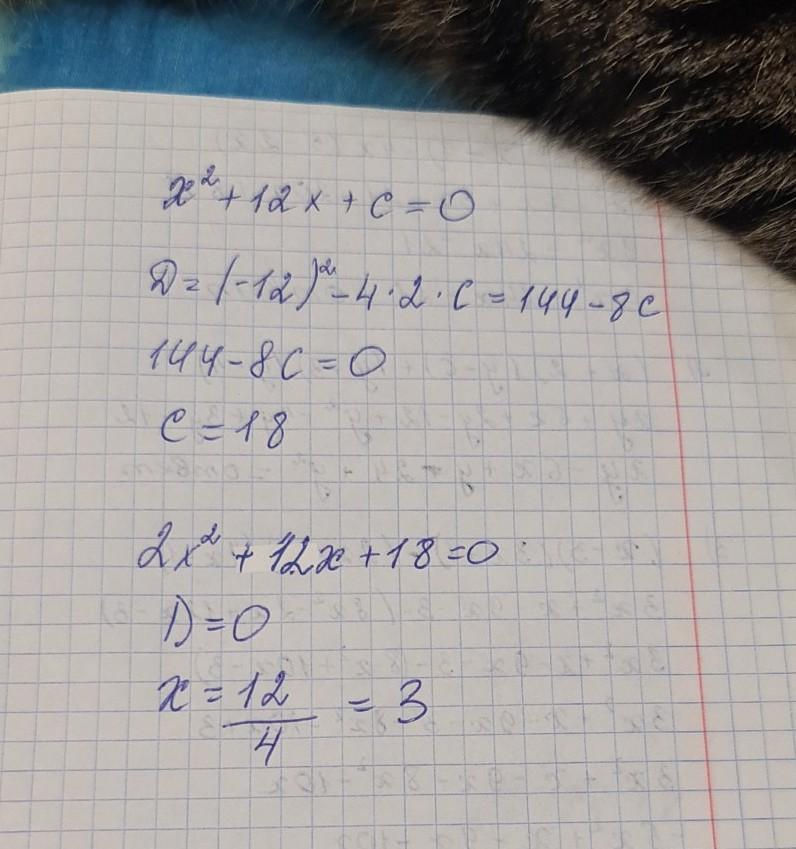 x² + 12x + c = 0
D = (-12)² - 4 · 2 · c = 144 - 8c
144 - 8c = 0
c = 18
2x² + 12x + 18 = 0
D = 0
x = 12/4 = 3